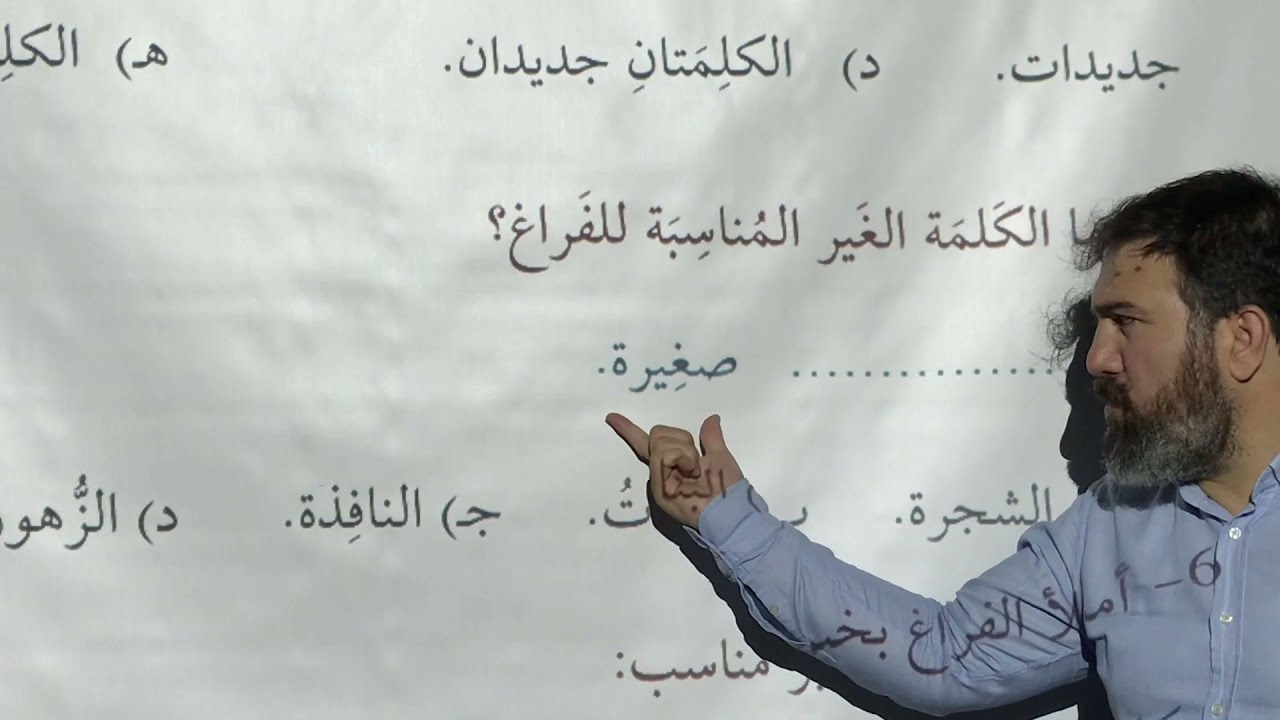 جديدات. د) الكلِمَتانِ جديدان. هـ)
الكَلمَة الغَير المُناسِبَة للفَراغ؟
............... صغِيرة.
الشجرة. ب) جـ) النافِذة. د)
6- أملأ الفراغ
مناسب: